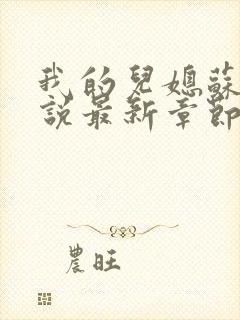 我的兒媳蘇
說最新章節
農旺